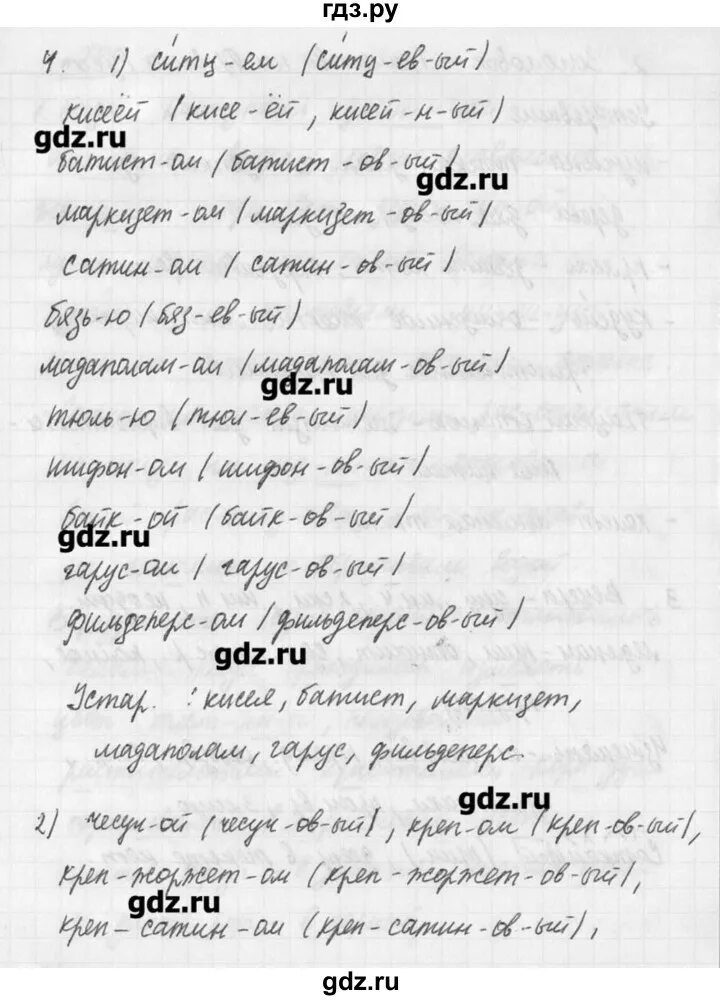 гдз.ру
4. 1) си́тц-ем (си́тц-ев-ый)
кисеёй (кисе-ёй, кисей-н-ый)
gdz.ru
батист-ом (батист-ов-ый)
gdz.ru
маркизет-ом (маркизет-ов-ый)
сатин-ом (сатин-ов-ый)
бязь-ю (бяз-ев-ый)
мадаполам-ом (мадаполам-ов-ый)
gdz.ru
тюль-ю (тюл-ев-ый)
шифон-ом (шифон-ов-ый)
байк-ой (байк-ов-ый)
gdz.ru
гарус-ом (гарус-ов-ый)
фильдеперс-ом (фильдеперс-ов-ый)
gdz.ru
Устар. : кисея, батист, маркизет,
мадаполам, гарус, фильдеперс
gdz.ru
2) чесуч-ой (чесуч-ов-ый), креп-ом (креп-ов-ый),
креп-жоржет-ом (креп-жоржет-ов-ый),
gdz.ru
креп-сатин-ом (креп-сатин-ов-ый),
gdz.ru